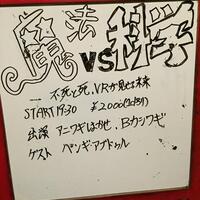 魔法
VS科学
不死と死、VRが見せる未来
START19:30 ¥2000(1d別)
出演 アニワギはかせ、Bカシワギ
ゲスト ペンギ・アブドゥル